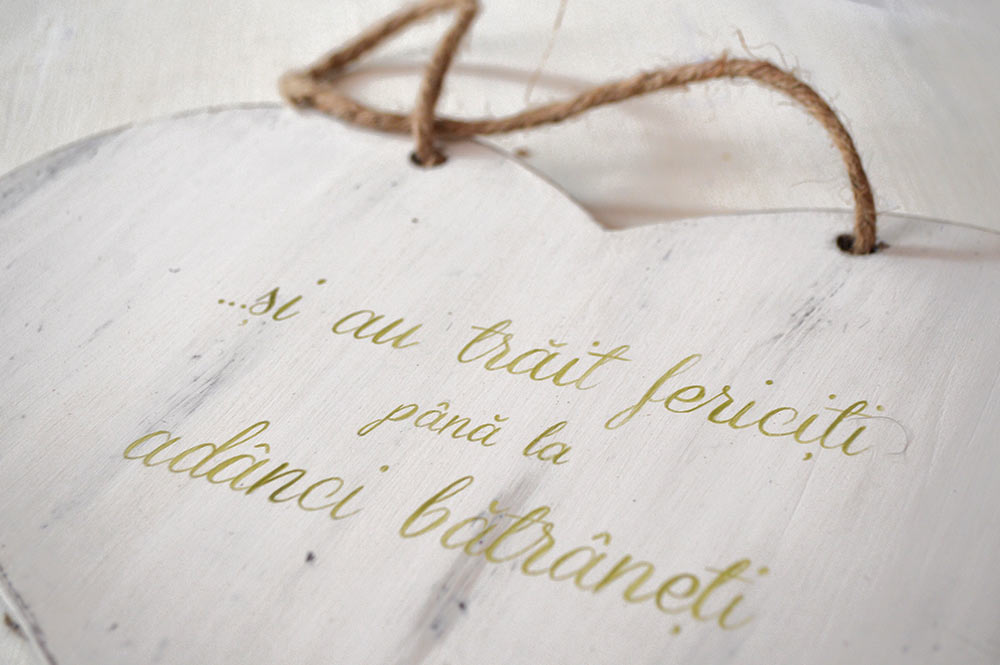 ...și au trăit fericiți
până la
adânci bătrâneți